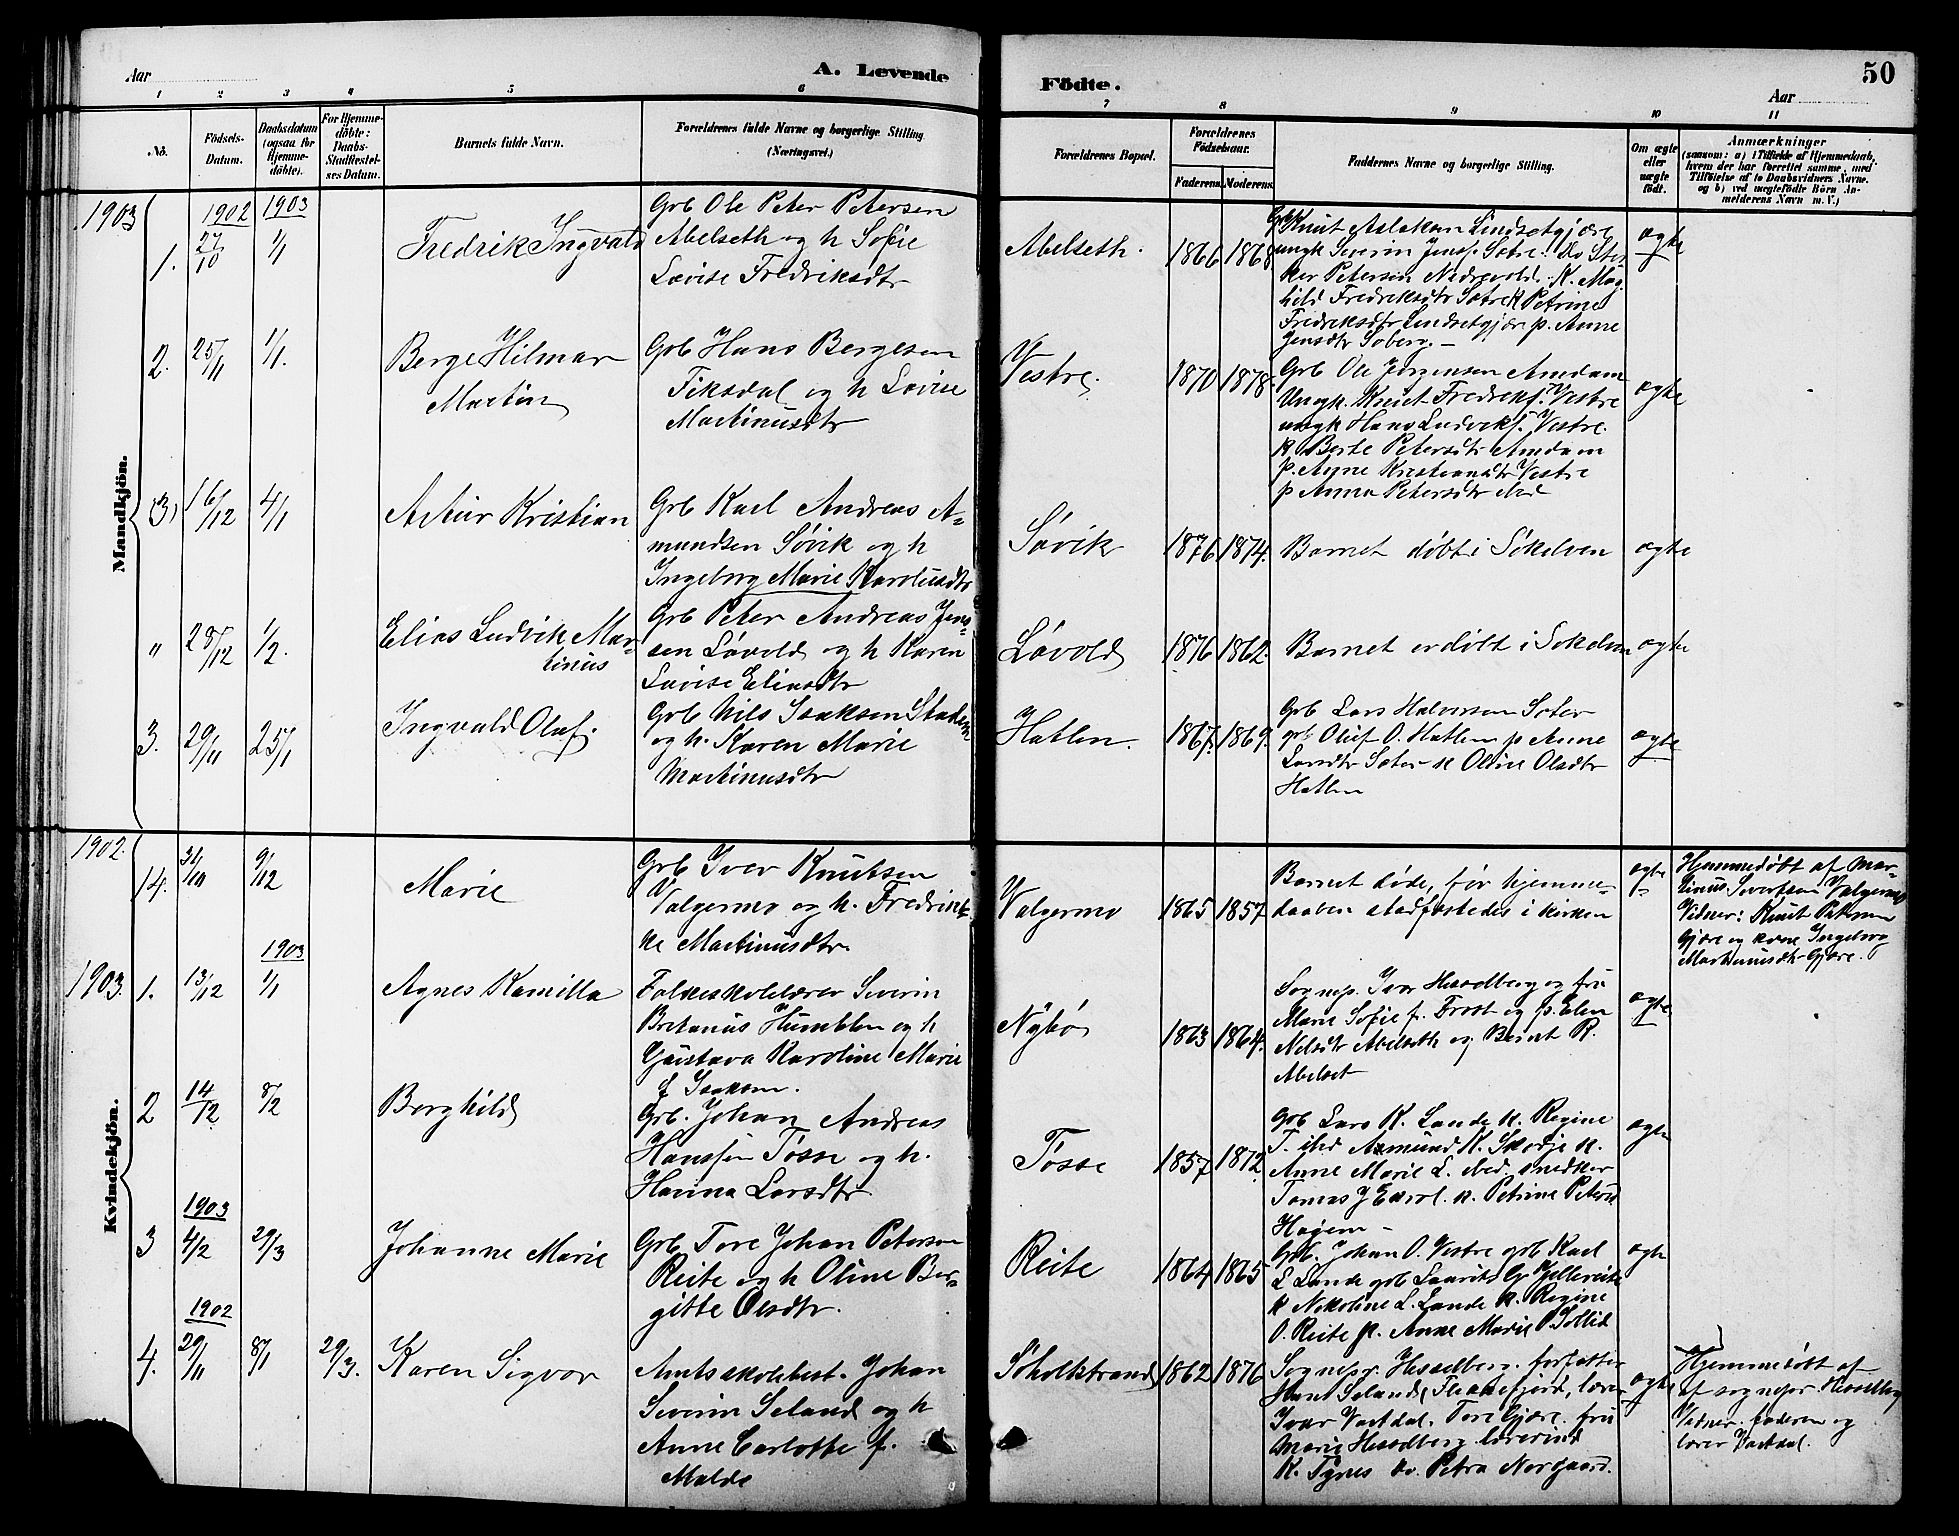 Aar
A. Levende
Födte.
50
Aar
1 2 3 4 5 6 7 8 9 10 11
No.
Födsels-Datum.
Daabsdatum (ogsaa for Hjemme-döbte).
For Hjemme-döbte: Daabs-Stadfæstel-ses Datum.
Barnets fulde Navn.
Forældrenes fulde Navne og borgerlige Stilling
(Næringsvei.)
Forældrenes Bopæl.
Forældrenes Födselsaar.
Faderens
Moderens
Faddernes Navne og borgerlige Stilling.
Om ægte eller uægte födt.
Anmærkninger
(saasom: a) i Tilfælde af Hjemmedaab,
hvem der har forrettet samme, med
Tilföielse af to Daabsvidners Navne,
og b) ved uægtefödte Börn An-
melderens Navn m. V.)
Mandkjön.
1903
1902 1903
1. 27/10 1/1 Fredrik Ingvald
Grb Ole Peter Petersen
Abelseth og h Sofie
Lovise Fredriksdtr
Abelseth. 1866 1868
Grb Knut Aslaksen Lindsetgjære
ungk Severin Jensf. Sætre.
Petersen Nedrevold. K. Mag-
hild Fredriksdtr Sætre K Petrine
Fredriksdtr Lindsetgjære p. Anne
Jensdtr Soberg. –
ægte
2. 25/11 1/1. Berge Hilmar
Martin
Grb Hans Bergesen
Fiksdal og h Lovise
Martinusdtr
Vestre. 1870 1878.
Grb Ole Jørgensen Amdam
Ungk. Knut Fredriksf. Vestre
ungk Hans Ludviksf. Vestre.
k Berte Petersdtr Amdam
p. Anne Kristiansdtr Vestre
p Anna Petersdtr ibid
ægte
(3) 16/12 4/1 Artur Kristian
Grb Karl Andreas A-
mundsen Søvik og h
Ingeborg Marie Karolusdtr
Søvik 1876 1874. Barnet døbt i Søkelven ægte
" 28/12 1/2. Elias Ludvik Mar-
tinus
Grb Peter Andreas Jens-
sen Løvold og h Karen
Lovise Eliasdtr
Løvold 1876 1862. Barnet er døbt i Søkelven ægte
3. 29/11 25/1 Ingvald Olaf.
Grb Nils Isaksen Stadem
og h. Karen Marie
Martinusdtr
Hatlen. 1867. 1869.
Grb Lars Halvorsen Sæter
grb Oluf O. Hatlem p Anne
Larsdtr Sæter – k Oline Olsdtr
Hatlen
ægte
Kvindekjön.
1902.
14. 31/10 9/12 Marie
Grb Iver Knutsen
Valgermo og h. Fredrik-
ke Martinusdtr.
Valgermo 1865 1857
Barnet døde, før hjemme-
daaben stadfæstedes i kirken
ægte
Hjemmedøbt af Mar-
tinus Sivertsen Valgermo
Vidner: Knut Petersen
Gjære og kone Ingeborg
Martinusdtr Gjære.
1903
1903. 1. 13/12 1/1 Agnes Kamilla
Folkeskolelærer Severin
Britanus Humblen og h
Gustava Karoline Marie
f Isaksen.
Nybø 1863 1864.
Sognep. Ivar Hesselberg og fru
Marie Sofie f. Frost og p. Elen
Nelsdtr Abelseth og Bernt R.
Abelset
ægte
2 14/12 8/2 Borghild
Grb. Johan Andreas
Hanssen Tøsse og h.
Hanna Larsdtr
Tøsse 1857 1872.
Grb Lars K. Lande k. Regine
T. ibid Asmund K. Skodje k.
Anne Marie L. ibid. snedker
Tomas J k. Petrine Petersd
Hagem –
ægte
1903
3 4/2 29/3 Johanne Marie
Grb Tore Johan Petersen
Reite og h Oline Ber-
gitte Olsdtr.
Reite 1864 1865
Grb. Johan O. Vestre grb Karl
L Lande grb Laurits G Kjellereite
k Nikoline L. Lande k. Regine
O. Reite p. Anne Marie P Sollid
ægte
1902
4. 29/11 8/1 29/3. Karen Sigvor
Amtsskolebest. Johan
Severin Seland og h
Anne Carlotte f.
Molde
Søholtstrand 1862 1876
Sognepr. Hesselberg. forfatter
Hans Seland, Flekkefjord, lærer
Ivar Vastdal. Tore Gjære. fru
Marie Hesselberg lærerinde
K. Tynes do. Petra Norgaard.
ægte
Hjemmedøbt af
af sognepr. Hesselberg
Vidner. faderen og
lærer Vastdal.